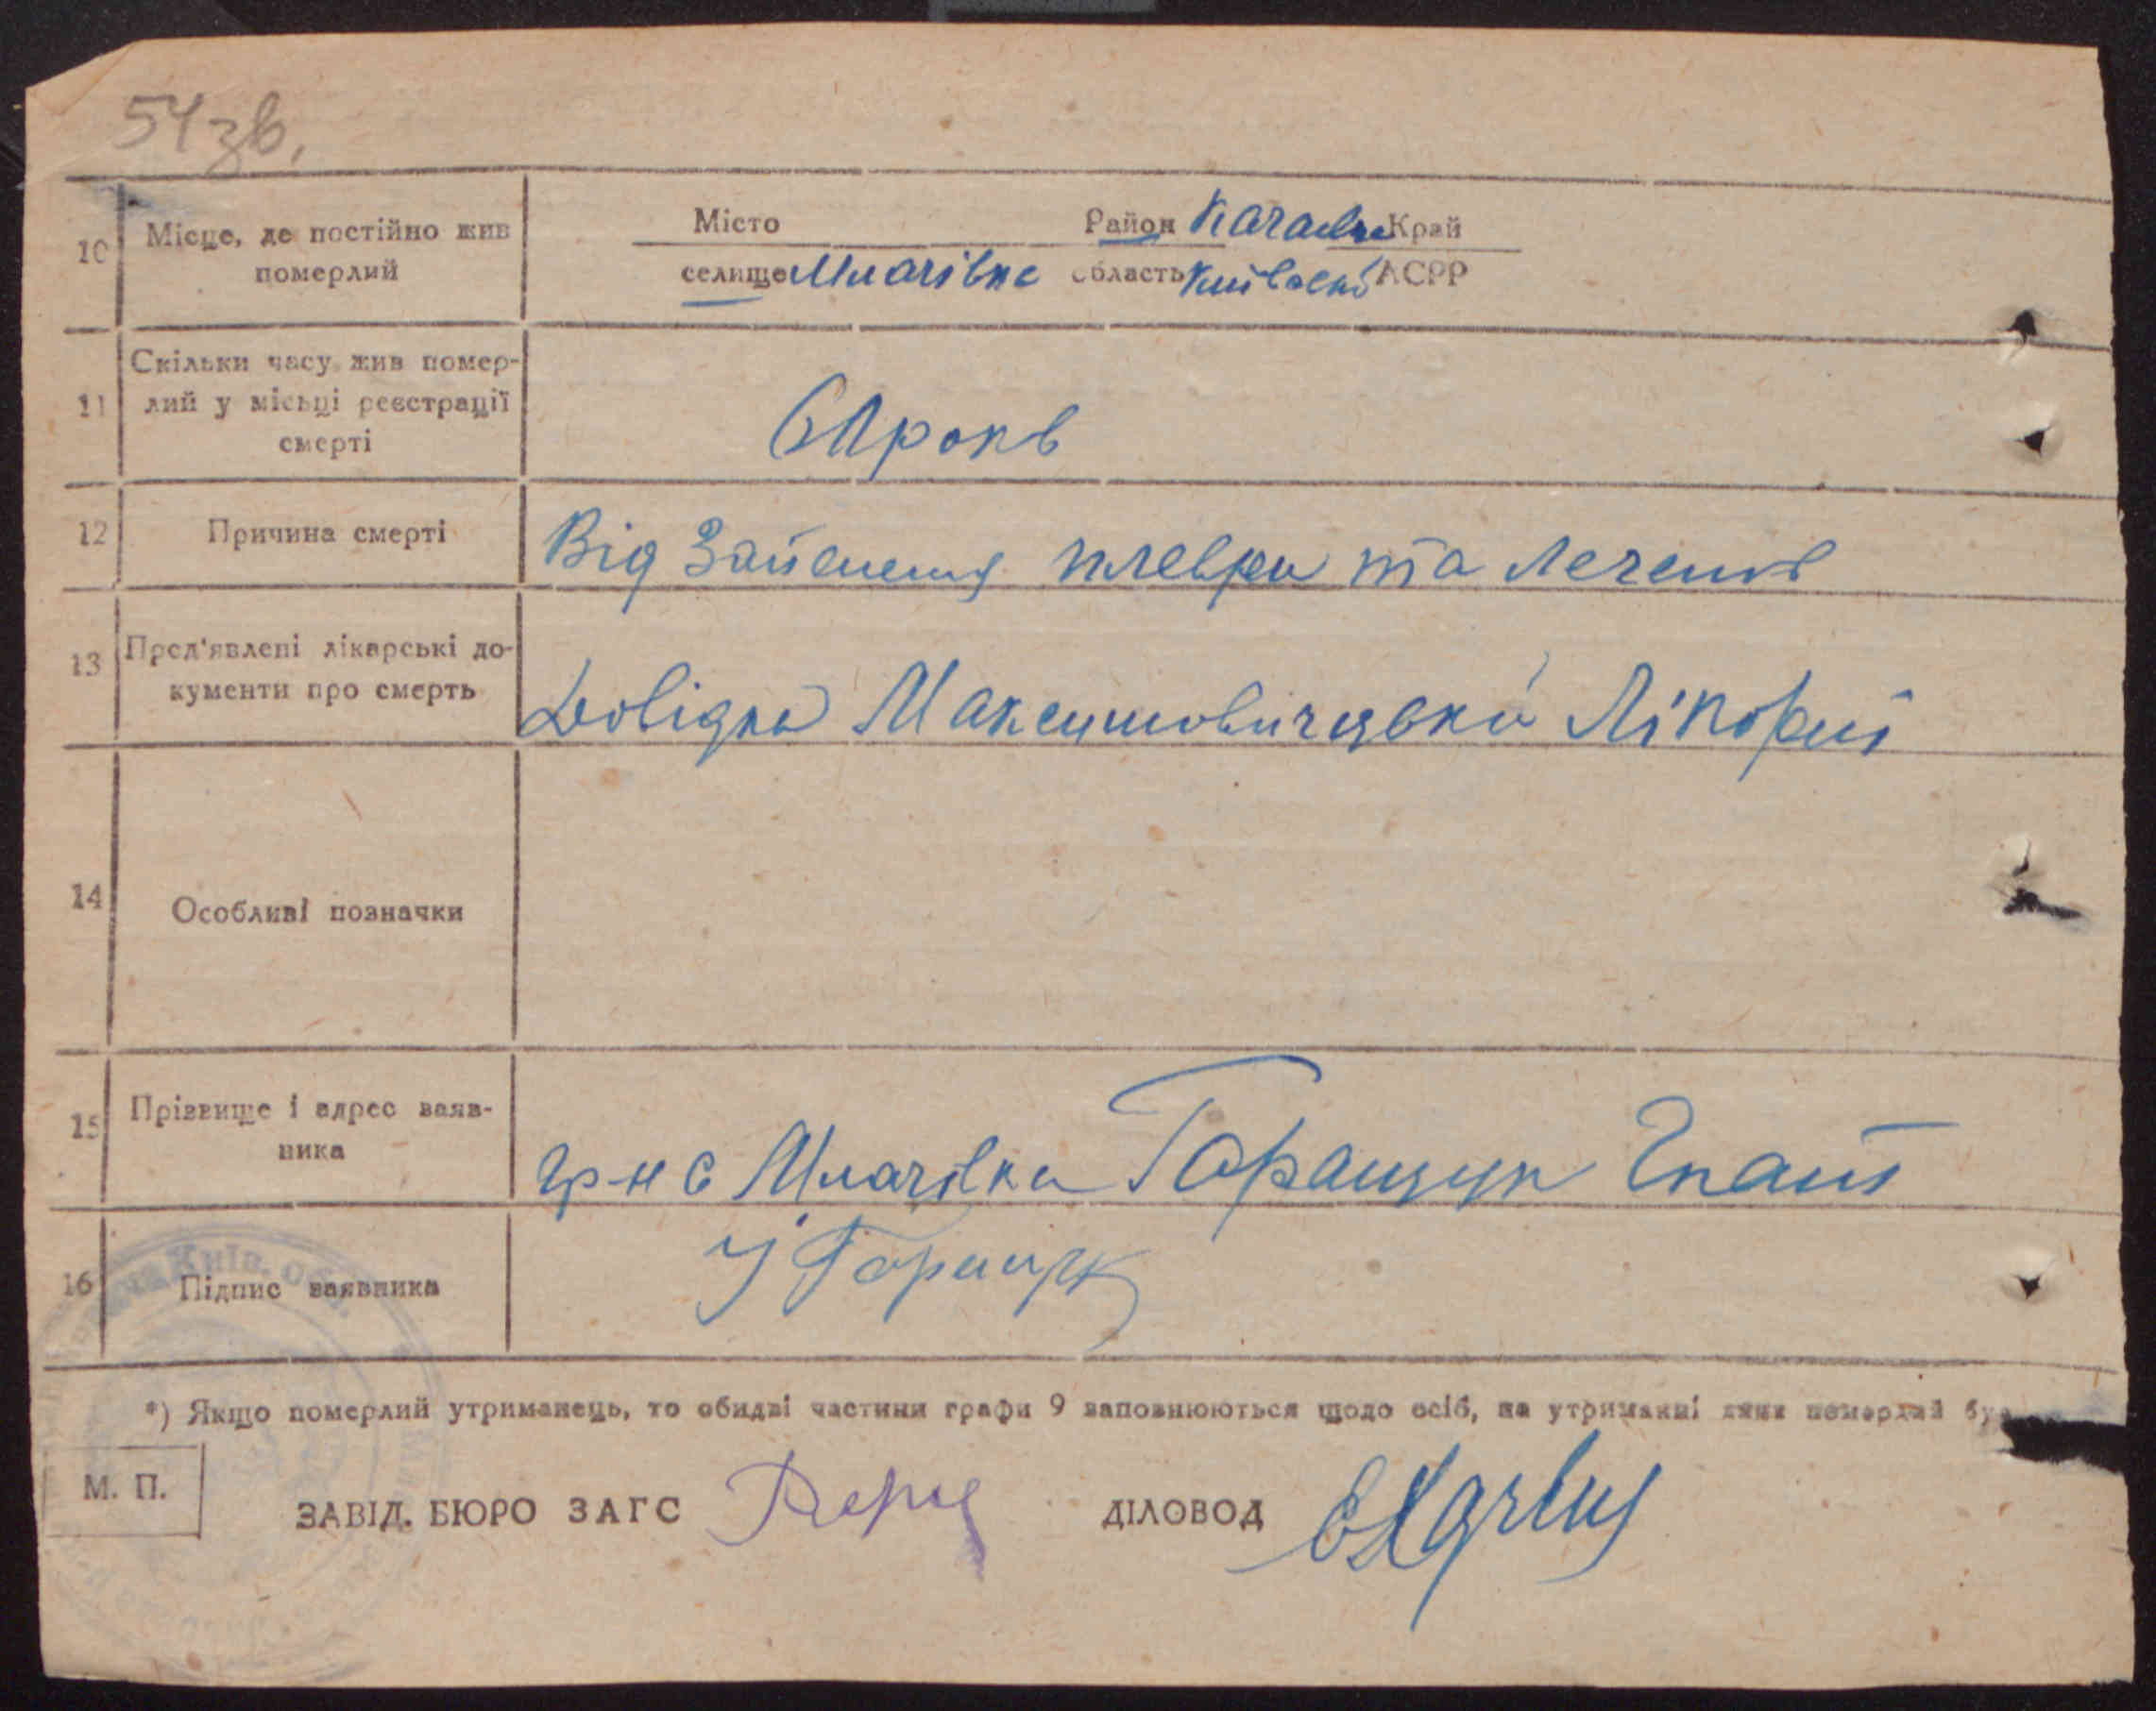 54 зв.
10 Місце, де постійно жив померлий
Місто Район Край
селище Млачівка область Київської АСРР
11 Скільки часу жив помер-
лий у місьці реєстрації
смерті
років
12 Причина смерті
Від Запеленя плеври та Легенів
13 Пред'явлені лікарські до-
кументи про смерть
Довідка Максимовичської Лікорні
14 Особливі позначки
15 Прізвище і адрес заяв-
ника
гр-н с Млачівка Горащук Гнат
16 Підпис заявника
*) Якщо померлий утриманець, то обидві частини графи 9 заповнюються щодо осіб, на утриманні яких померлий був
М. П.
ЗАВІД. БЮРО ЗАГС
ДІЛОВОД